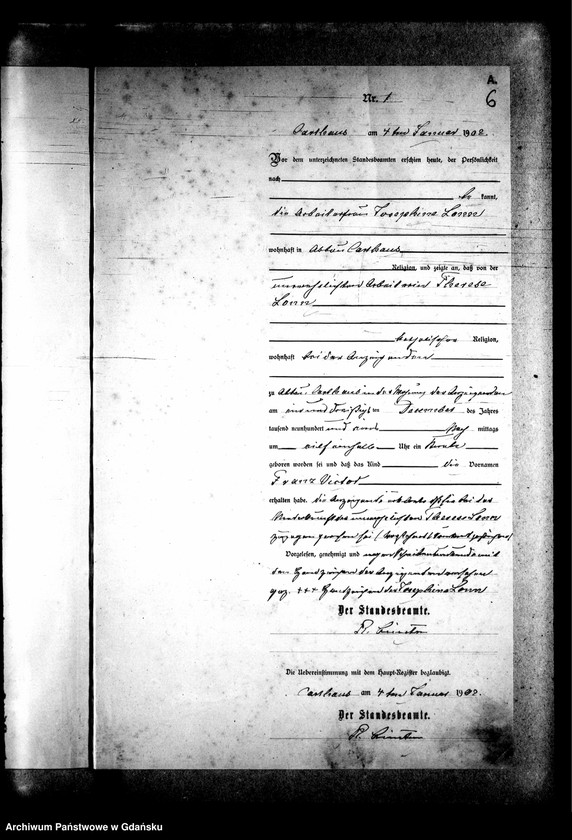 A.
6
Nr. 1
Carthaus am 4ten Januar 1902.
Vor dem unterzeichneten Standesbeamten erschien heute, der Persönlichkeit
nach
be kannt,
die Arbeiterfrau Josephine Lonn
wohnhaft in Abbau Carthaus
Religion, und zeigte an, daß von der
unverehelichten Arbeiterin Therese
Lonn
katholischer Religion,
wohnhaft bei der Anzeigenden
zu Abbau Carthaus in der Wohnung der Anzeigenden
am ein und dreißigsten Dezember des Jahres
tausend neunhundert und eins Nach mittags
um Uhr ein Knabe
geboren worden sei und daß das Kind die Vornamen
Franz Victor
erhalten habe. Die Anzeigende erklärte daß sie bei der
Niederkunft der unverehelichten Therese Lonn
zugegen gewesen sei
Vorgelesen, genehmigt und mit
den Handzeichen der Anzeigenden versehen
gez. +++ Handzeichen der Josephine Lonn
Der Standesbeamte.
Die Uebereinstimmung mit dem Haupt-Register beglaubigt.
Carthaus am 4ten Januar 1902.
Der Standesbeamte.
Archiwum Państwowe w Gdańsku